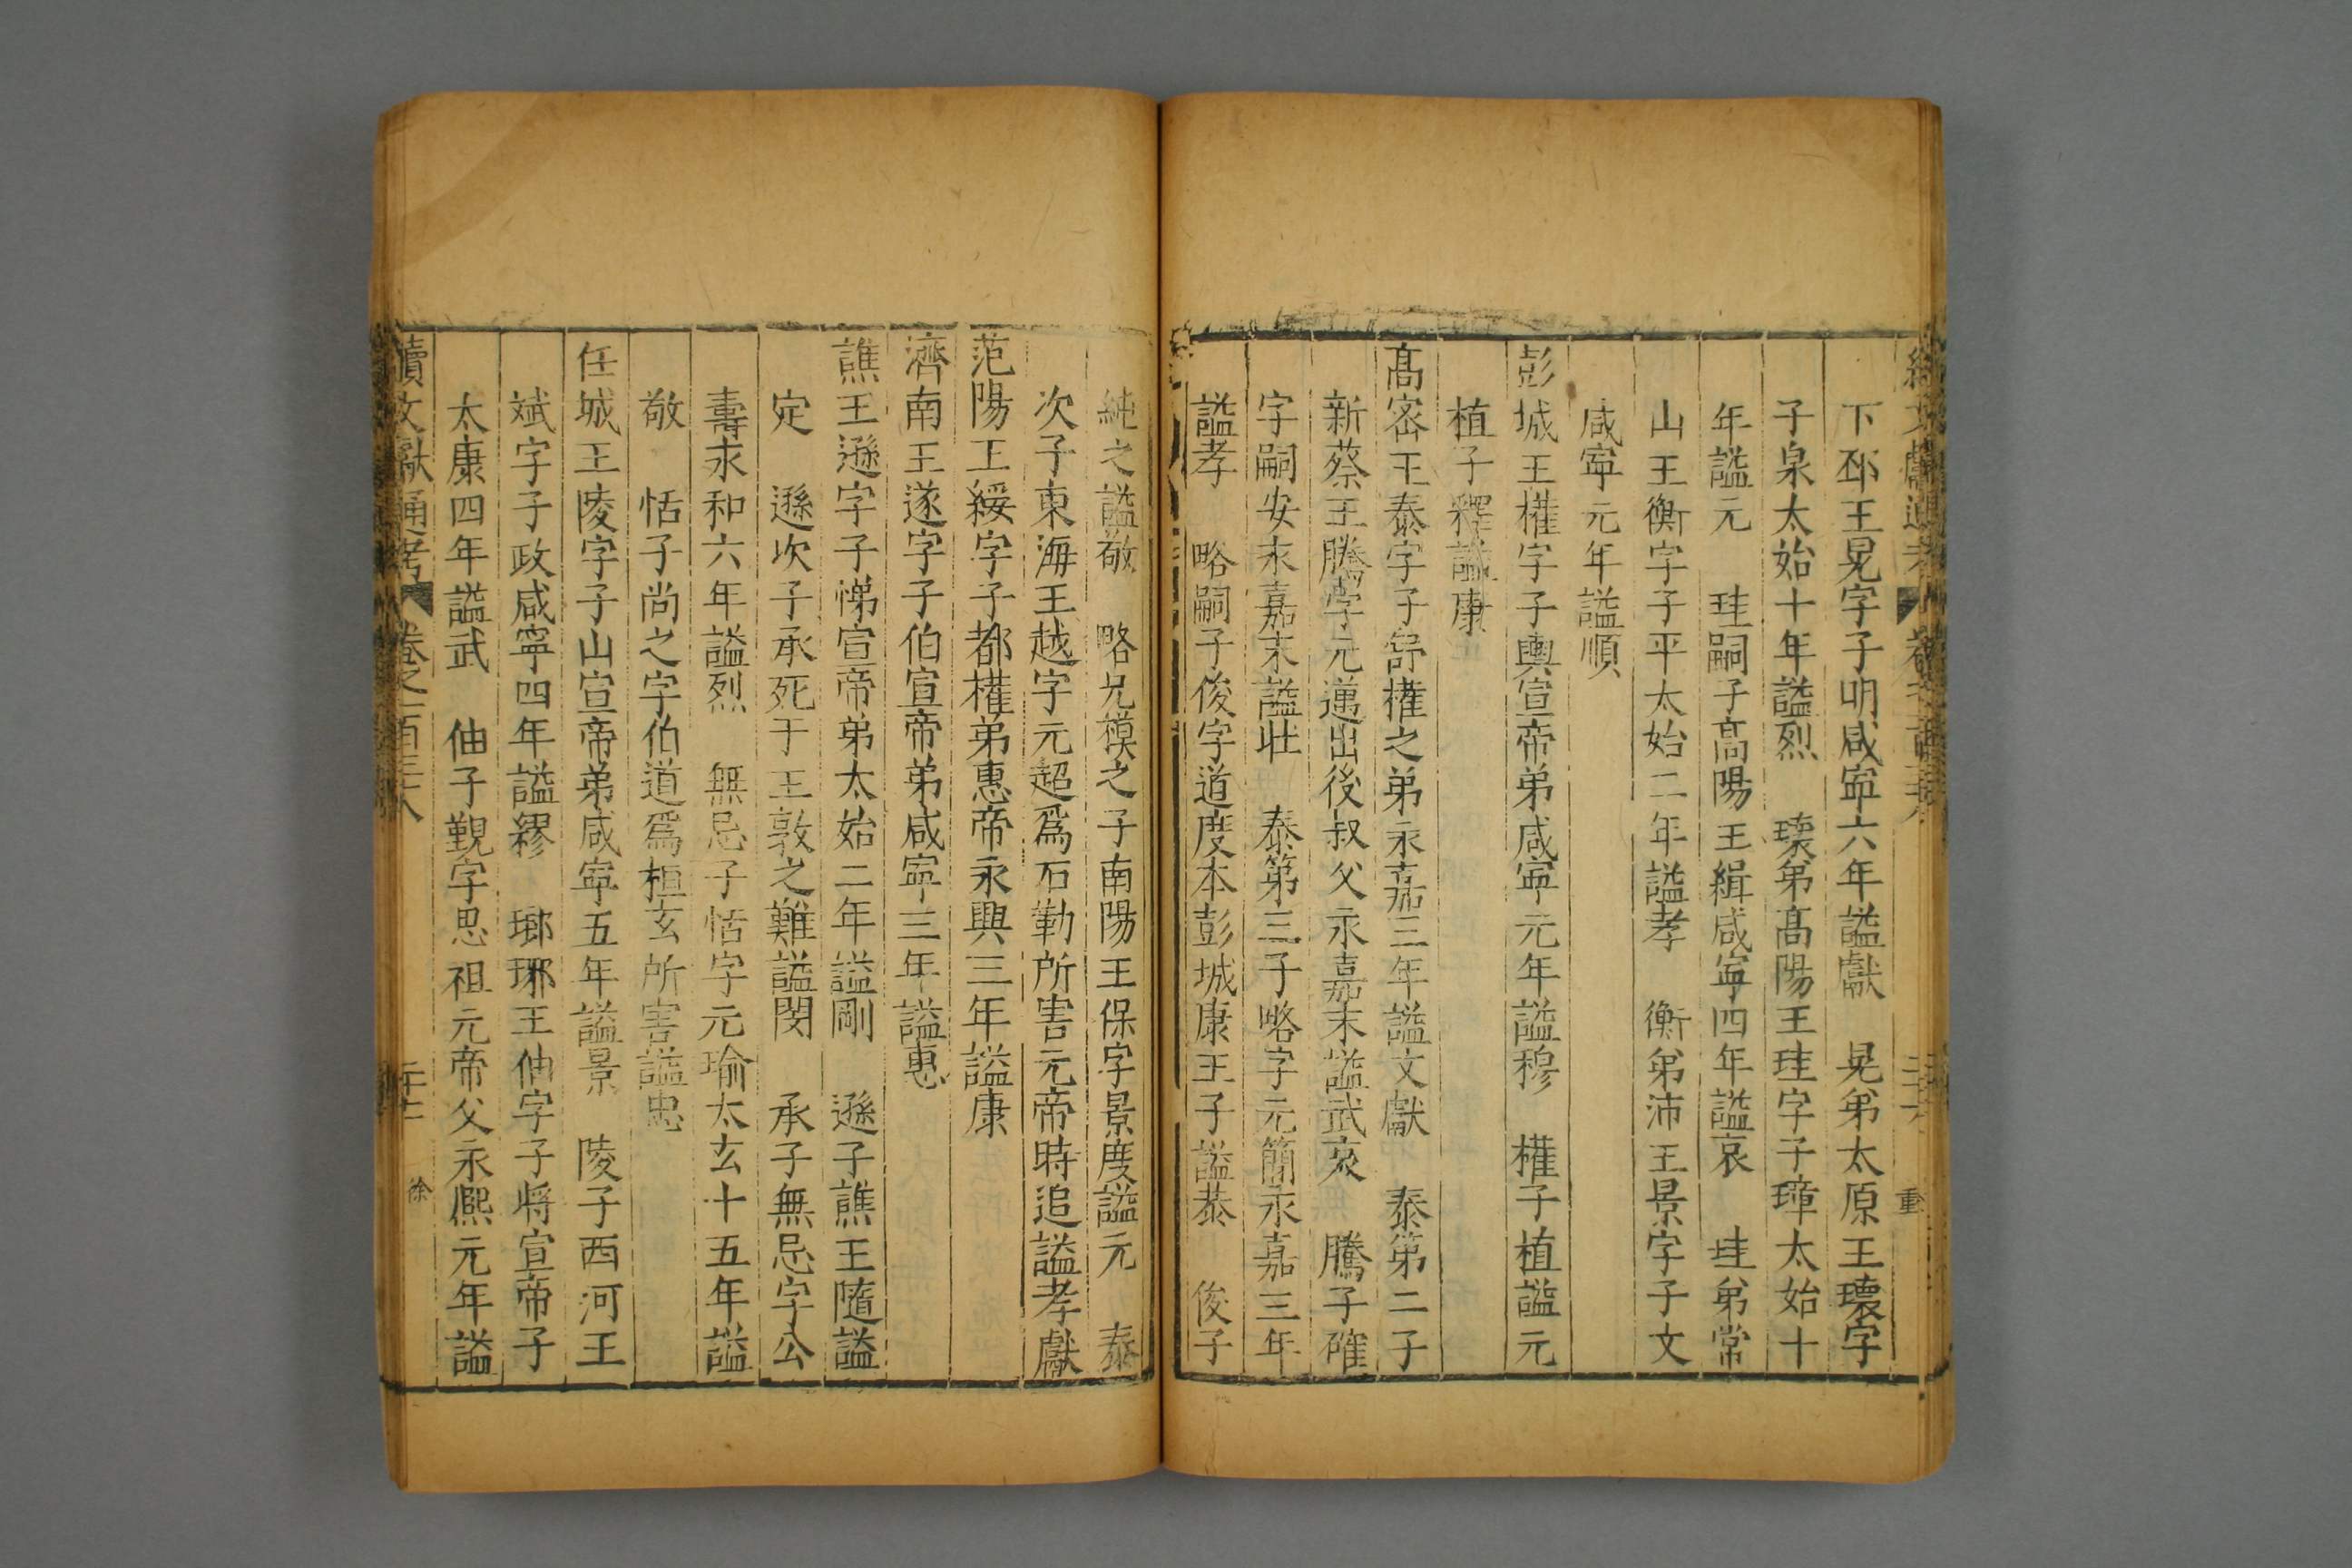 下邳王晃字子明咸寧六年謚獻　晃弟太原王瓌字
子泉太始十年謚烈　瓌弟髙陽王珪字子璋太始十
年謚元　珪嗣子髙陽王緝咸寧四年謚哀　珪弟常
山王衡字子平太始二年謚孝　衡弟沛王景字子文
咸寧元年謚順
彭城王權字子輿宣帝弟咸寧元年謚穆　權子植謚元
植子釋謚康
髙宻王泰字子舒權之弟永嘉三年謚文獻　泰第二子
新蔡王騰字元邁出後叔父永嘉末謚武哀　騰子確
字嗣安永嘉末謚壯　泰第三子略字元簡永嘉三年
謚孝　略嗣子俊字道度本彭城康王子謚恭　俊子
純之謚敬　略兄模之子南陽王保字景度謚元　泰
次子東海王越字元超爲石勒所害元帝時追謚孝獻
范陽王綏字子都權弟惠帝永興三年謚康
濟南王遂字子伯宣帝弟咸寧三年謚惠
譙王遜字子悌宣帝弟太始二年謚剛　遜子譙王隨謚
定　遜次子承死于王敦之難謚閔　承子無忌字公
壽永和六年謚烈　無忌子恬字元瑜太玄十五年謚
敬　恬子尚之字伯道爲桓玄所害謚忠
任城王陵字子山宣帝弟咸寧五年謚景　陵子西河王
斌字子政咸寧四年謚繆　瑯琊王伷字子將宣帝子
太康四年謚武　伷子覲字思祖元帝父永熈元年謚
續文獻通考　卷之一百三十八　徐